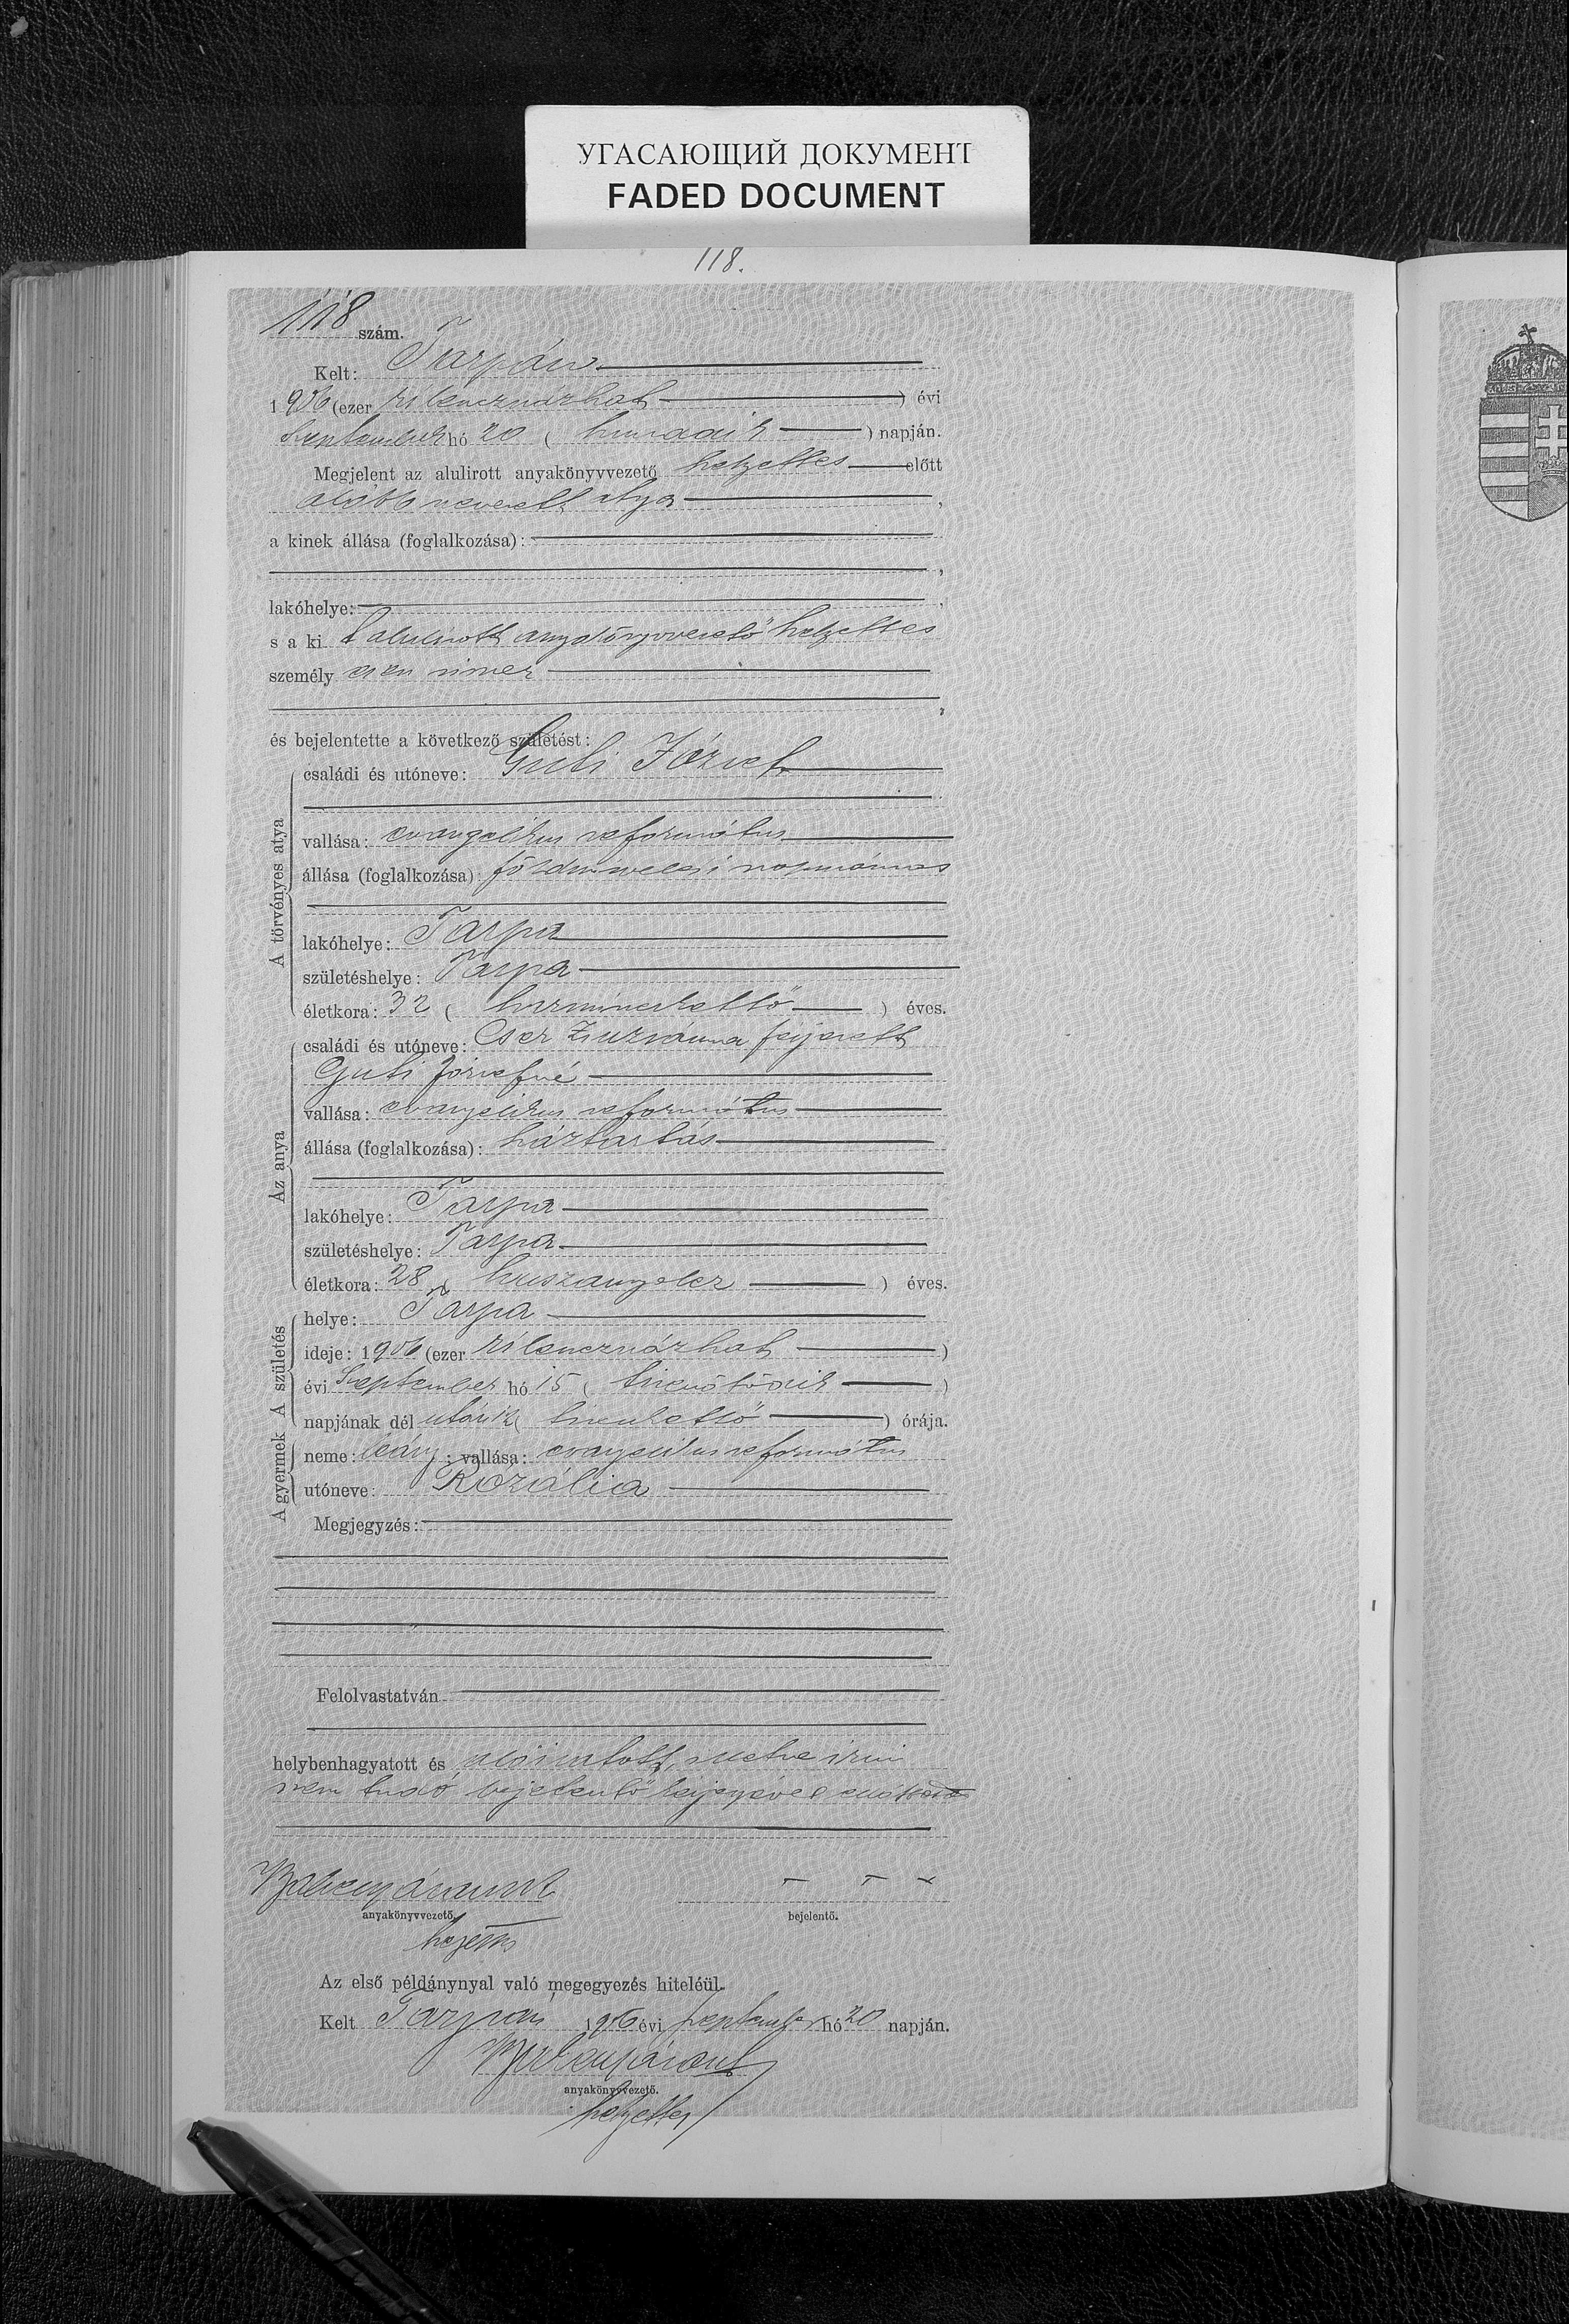 УГАСАЮЩИЙ ДОКУМЕНТ
FADED DOCUMENT
118.
118 szám.
Kelt: Tarpán
1906 (ezer kilenczszázhat ) évi
Szeptember hó 20 ( huszadik ) napján.
Megjelent az alulirott anyakönyvvezető helyettes előtt
alább nevezett atya ,
a kinek állása (foglalkozása):
,
lakóhelye: ,
s a ki t alulirott anyakönyvvezető helyettes
személyesen ismer
,
és bejelentette a következő születést:
A törvényes atya
családi és utóneve: Guti József
vallása: evangelikus református
állása (foglalkozása): földmivelési napszámos
lakóhelye: Tarpa
születéshelye: Tarpa
életkora: 32 ( harminczkettő ) éves.
Az anya
családi és utóneve: Cser Zsuzsánna férjezett
Guti Józsefné
vallása: evangelikus református
állása (foglalkozása): háztartás
lakóhelye: Tarpa
születéshelye: Tarpa
életkora: 28 ( huszonnyolcz ) éves.
A születés
helye: Tarpa
ideje: 1906 (ezer kilenczszázhat )
évi Szeptember hó 15 ( tizenötödik )
napjának dél után 12 ( tizenkettő ) órája.
A gyermek
neme: leány ; vallása: evangelikus református
utóneve: Rozália
Megjegyzés:
Felolvastatván
helybenhagyatott és aláiratott, illetve irni
nem tudó bejelentő kézjegyével elláttatott
anyakönyvvezető. bejelentő.
helyettes
Az első példánynyal való megegyezés hiteléül.
Kelt Tarpán 1906 évi szeptember hó 20 napján.
anyakönyvvezető.
helyettes